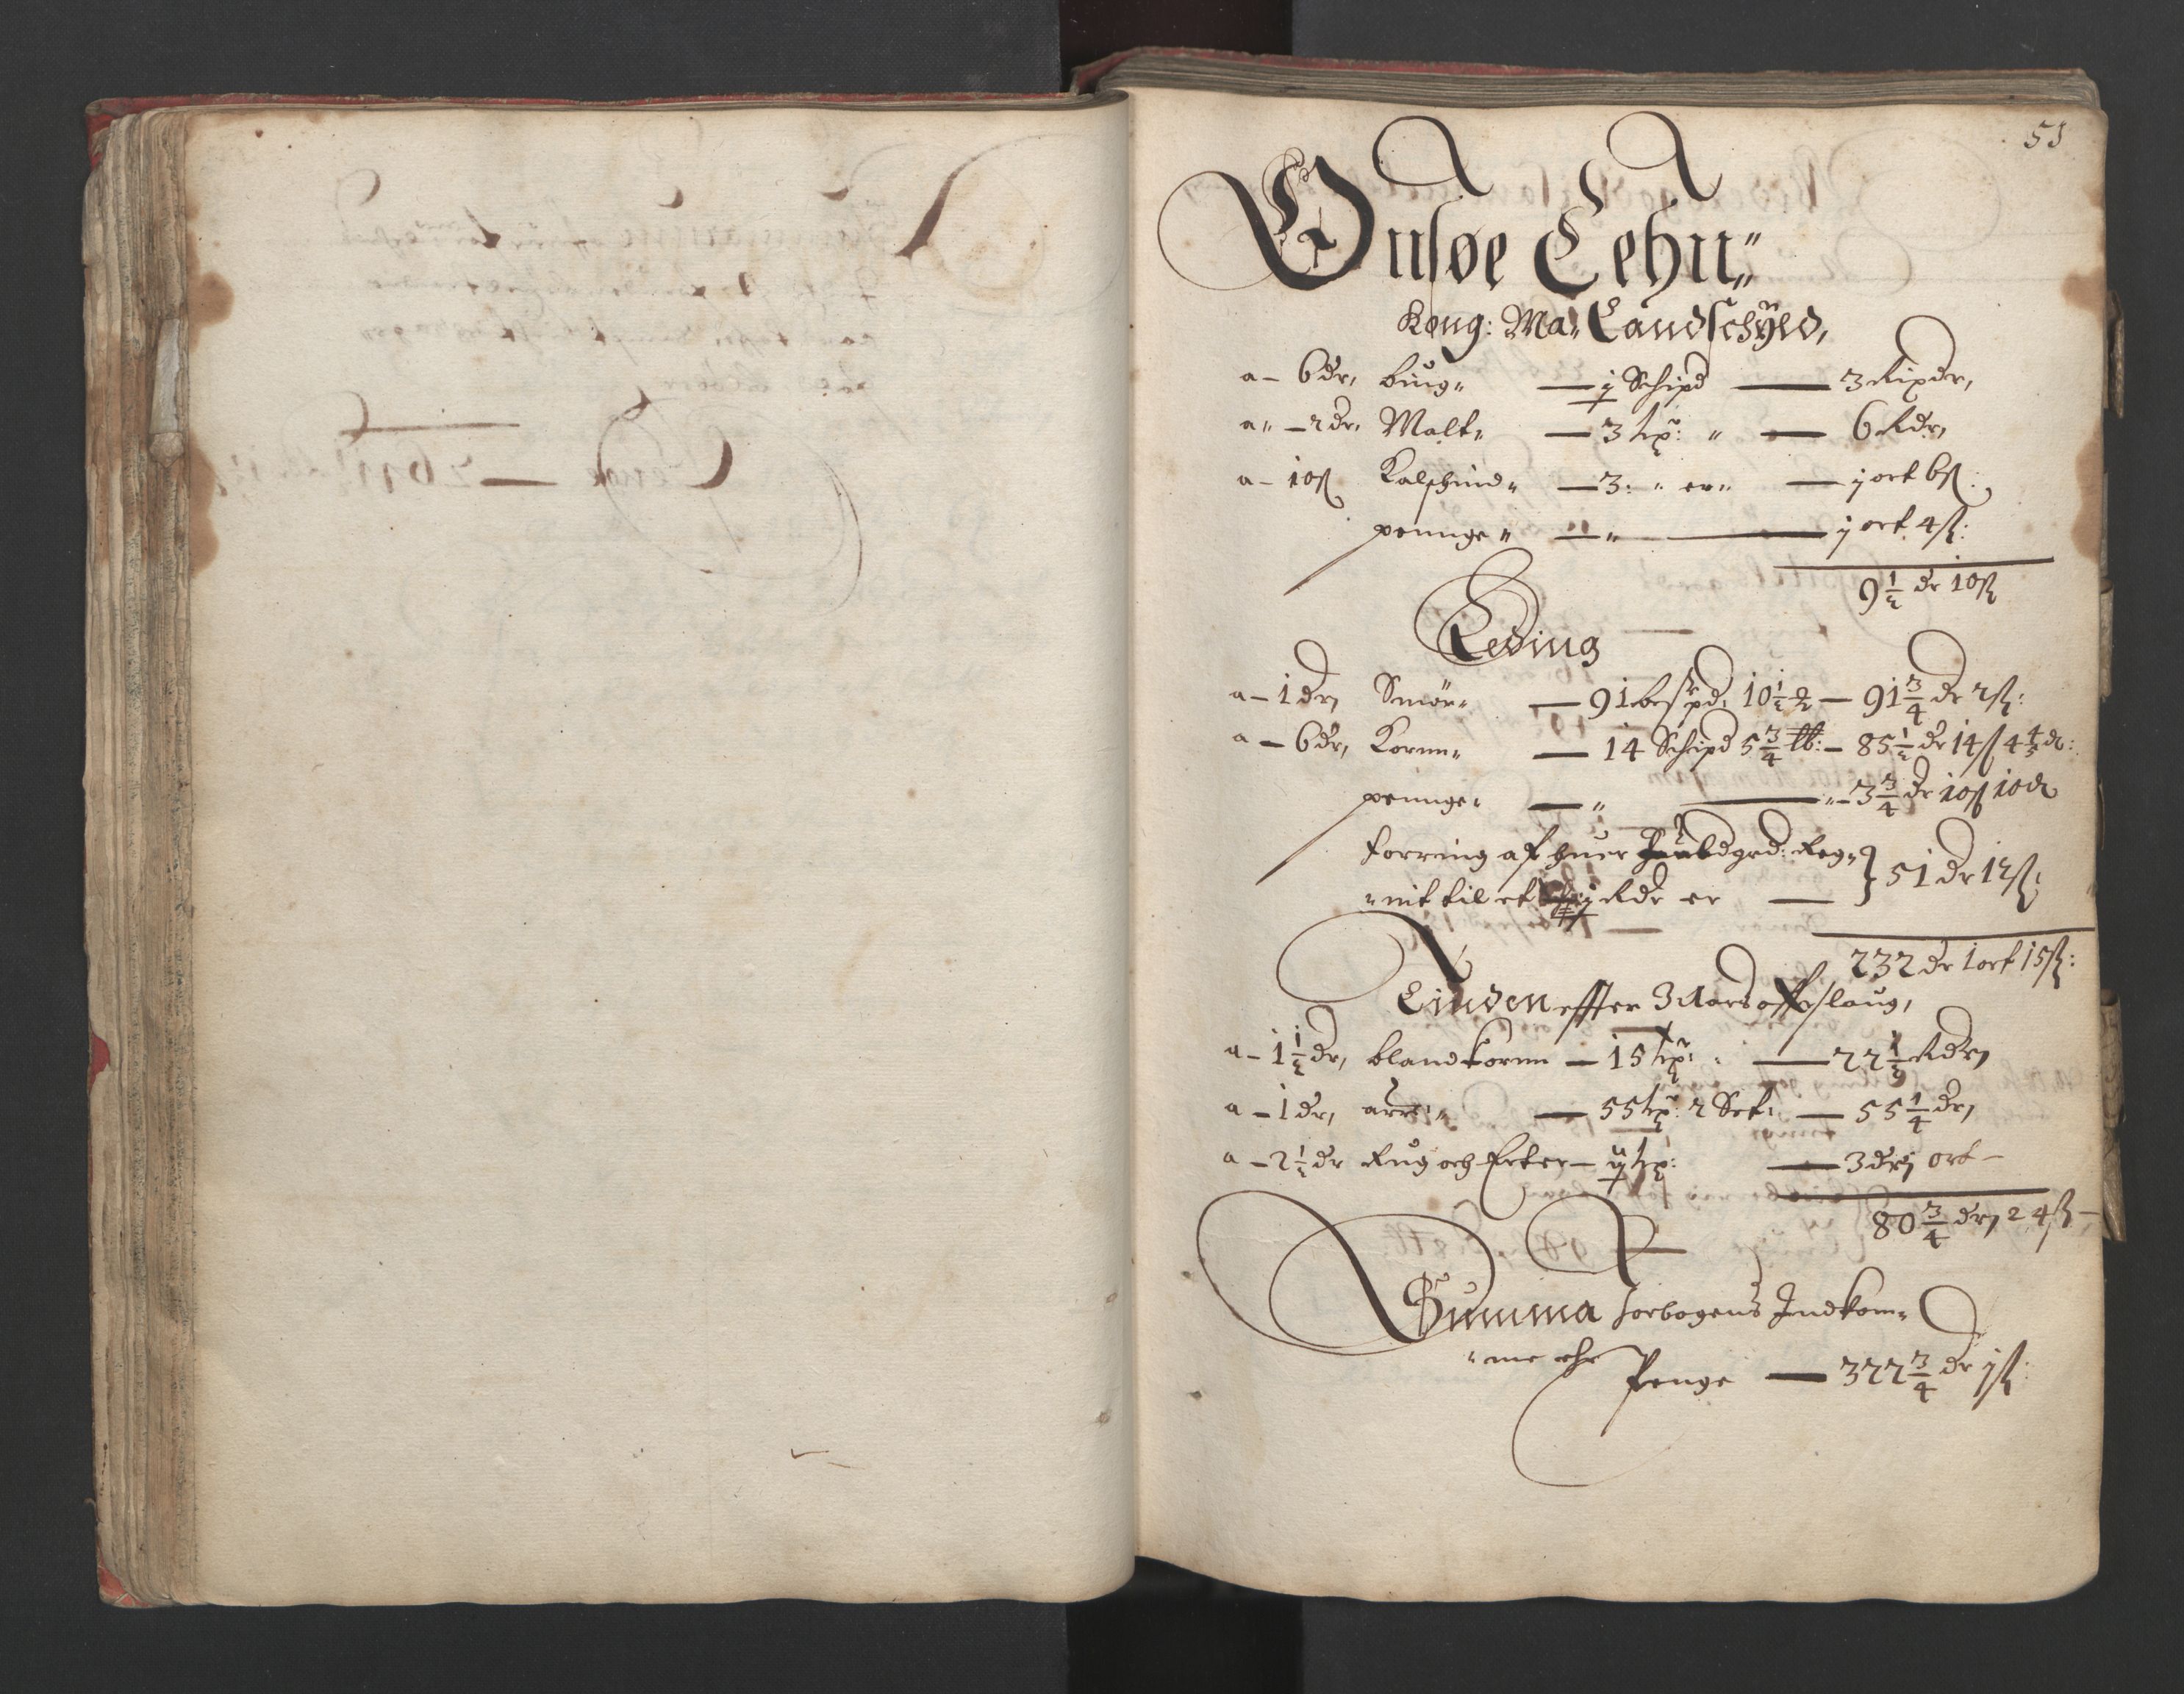 53
Onsøe Lehn„
Kong: Ma„ Landschÿld,
a – 6 dr, bÿug„ — j Schipd — 3 Rixdr,
a„ – 2 dr, Malt„ — 3 tꝑ: „ — 6 Rdr,
a – 10 ß Kalfschind„ — 3: „ er„ — j ort 6 ß:
penninge„ — „ — j ort 4 ß:
9 ½ dr 10 ß
Leding
a – 1 dr, Smør„ — 91 bespd, 10 ½ — 91 ¾ dr 2 ß:
a – 6 dr, Kornn„ — 14 Schipd 5 ¾ lb: – 85 ½ dr 14 ß 4 ⅘ d:
penninge„ — „ — „ – 3 ¾ dr 10 ß 10 d
foering af huer grd: Reg„
„nit til et Rdr er — 51 dr 12 ß:
232 dr 1 ort 15 ß:
Tienden effter 3 Aars affslaug,
a – 1 ½ dr, blandkornn – 15 tꝑ: — 22 ½ Rdr,
a – 1 dr, — 55 tꝑ: 2 Set: — 55 ¼ dr,
a – 2 ½ dr Rug och Erter – tꝑ: — 3 dr j ort –
80 ¾ dr, 24 ß –
Summa Jorbogens Indkom„
„me ehr
Penge — 322 ¾ dr j ß: